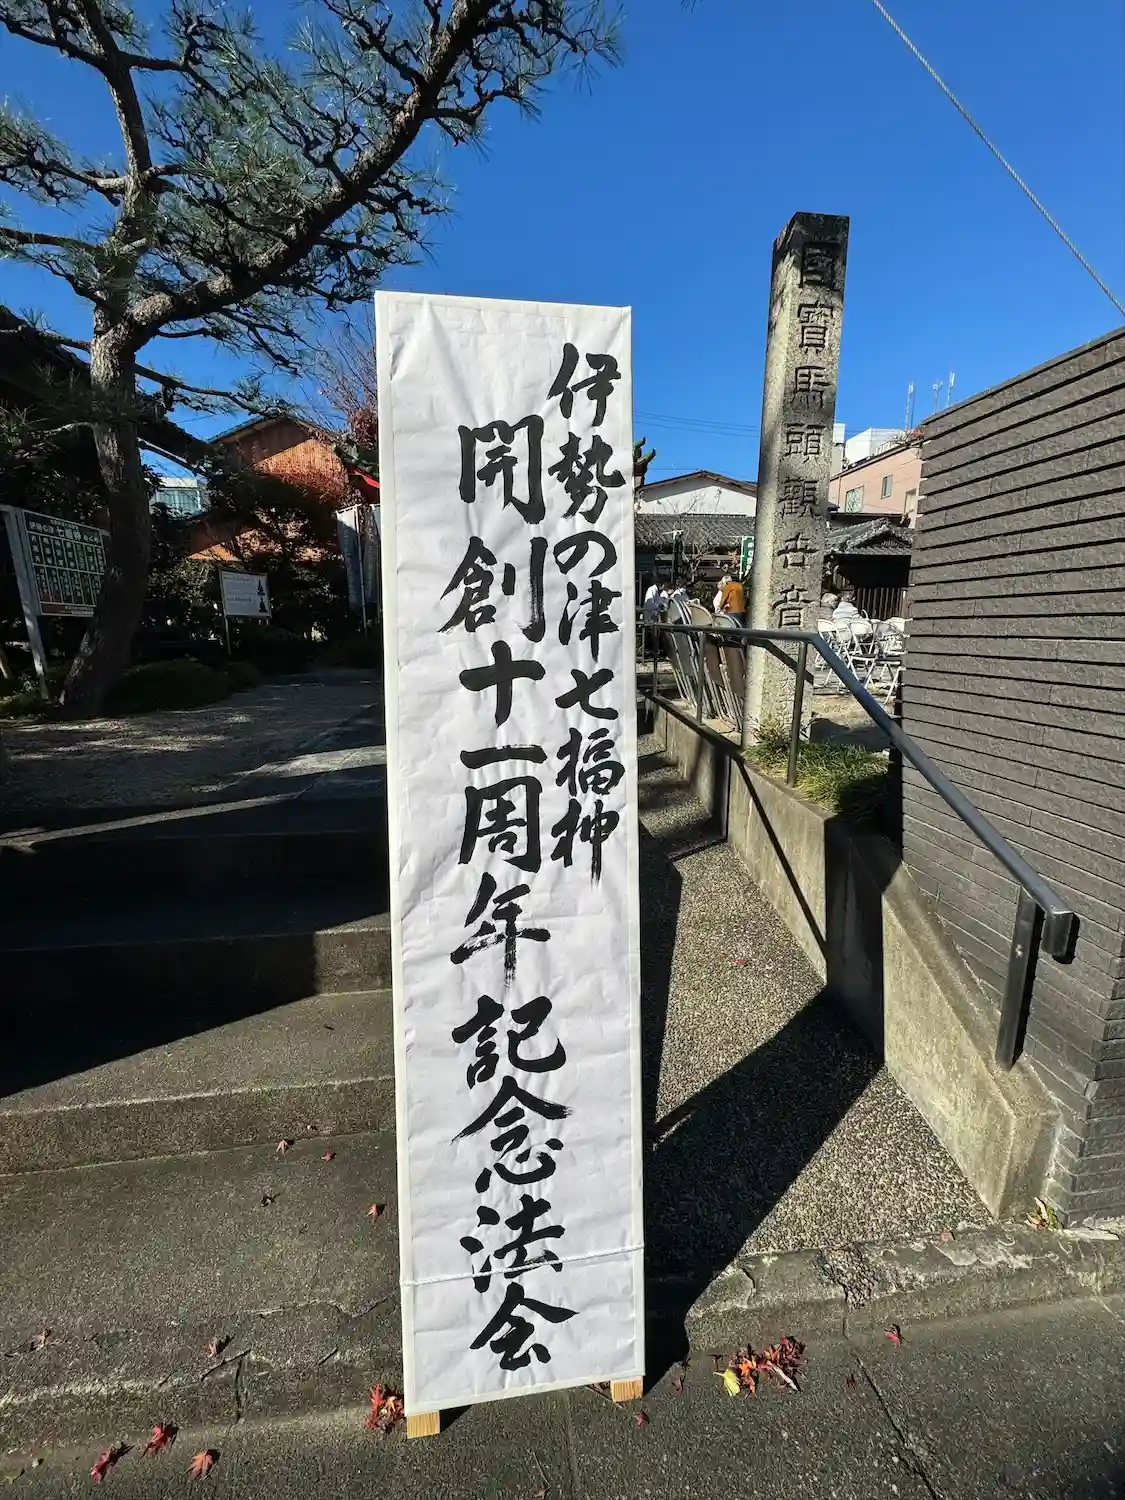 伊勢の津七福神
開創十一周年記念法会
國寳馬頭觀世音